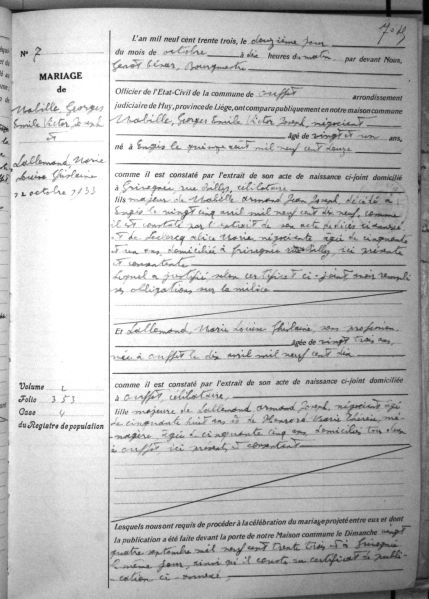 N° 7
MARIAGE
de
Mabille, Georges
Emile Victor Joseph
et
Lallemand, Marie
Louise Ghislaine
2 octobre 1933
Volume 2
Folio 353
Case 4
du Registre de population
L'an mil neuf cent trente trois, le deuxième jour
du mois de octobre à dix heures du matin par devant Nous,
Bourgmestre
Officier de l'Etat-Civil de la commune de Ouffet arrondissement
judiciaire de Huy, province de Liége, ont comparu publiquement en notre maison commune
Mabille, Georges Emile Victor Joseph, négociant
âgé de vingt et un ans,
né à Engis le quinze mil neuf cent douze
comme il est constaté par l'extrait de son acte de naissance ci-joint domicilié
à Grivegnée rue célibataire
fils majeur de Mabille Armand Jean Joseph, décédé à
Engis le vingt cinq avril mil neuf cent dix neuf, comme
il est constaté par l'extrait de son acte de décès ci-annexé
et de Leclercq Marie, négociante âgée de cinquante
et un ans domiciliée à Grivegnée ici présente
et consentante
Lequel a justifié selon certificat ci-joint avoir rempli
ses obligations sur la milice
Et Lallemand, Marie Louise Ghislaine, sans profession
âgée de vingt trois ans,
née à Ouffet le dix avril mil neuf cent dix
comme il est constaté par l'extrait de son acte de naissance ci-joint domiciliée
à Ouffet, célibataire,
fille majeure de Lallemand Armand Joseph, négociant âgé
de cinquante huit ans et de Marie Thérèse mé-
nagère âgée de cinquante cinq ans, domiciliés tous deux
à Ouffet ici présents et consentant
Lesquels nous ont requis de procéder à la célébration du mariage projeté entre eux et dont
la publication a été faite devant la porte de notre Maison commune le Dimanche vingt
quatre septembre mil neuf cent trente trois et à Grivegnée
le même jour, ainsi qu'il conste au certificat de publi-
cation ci-annexé